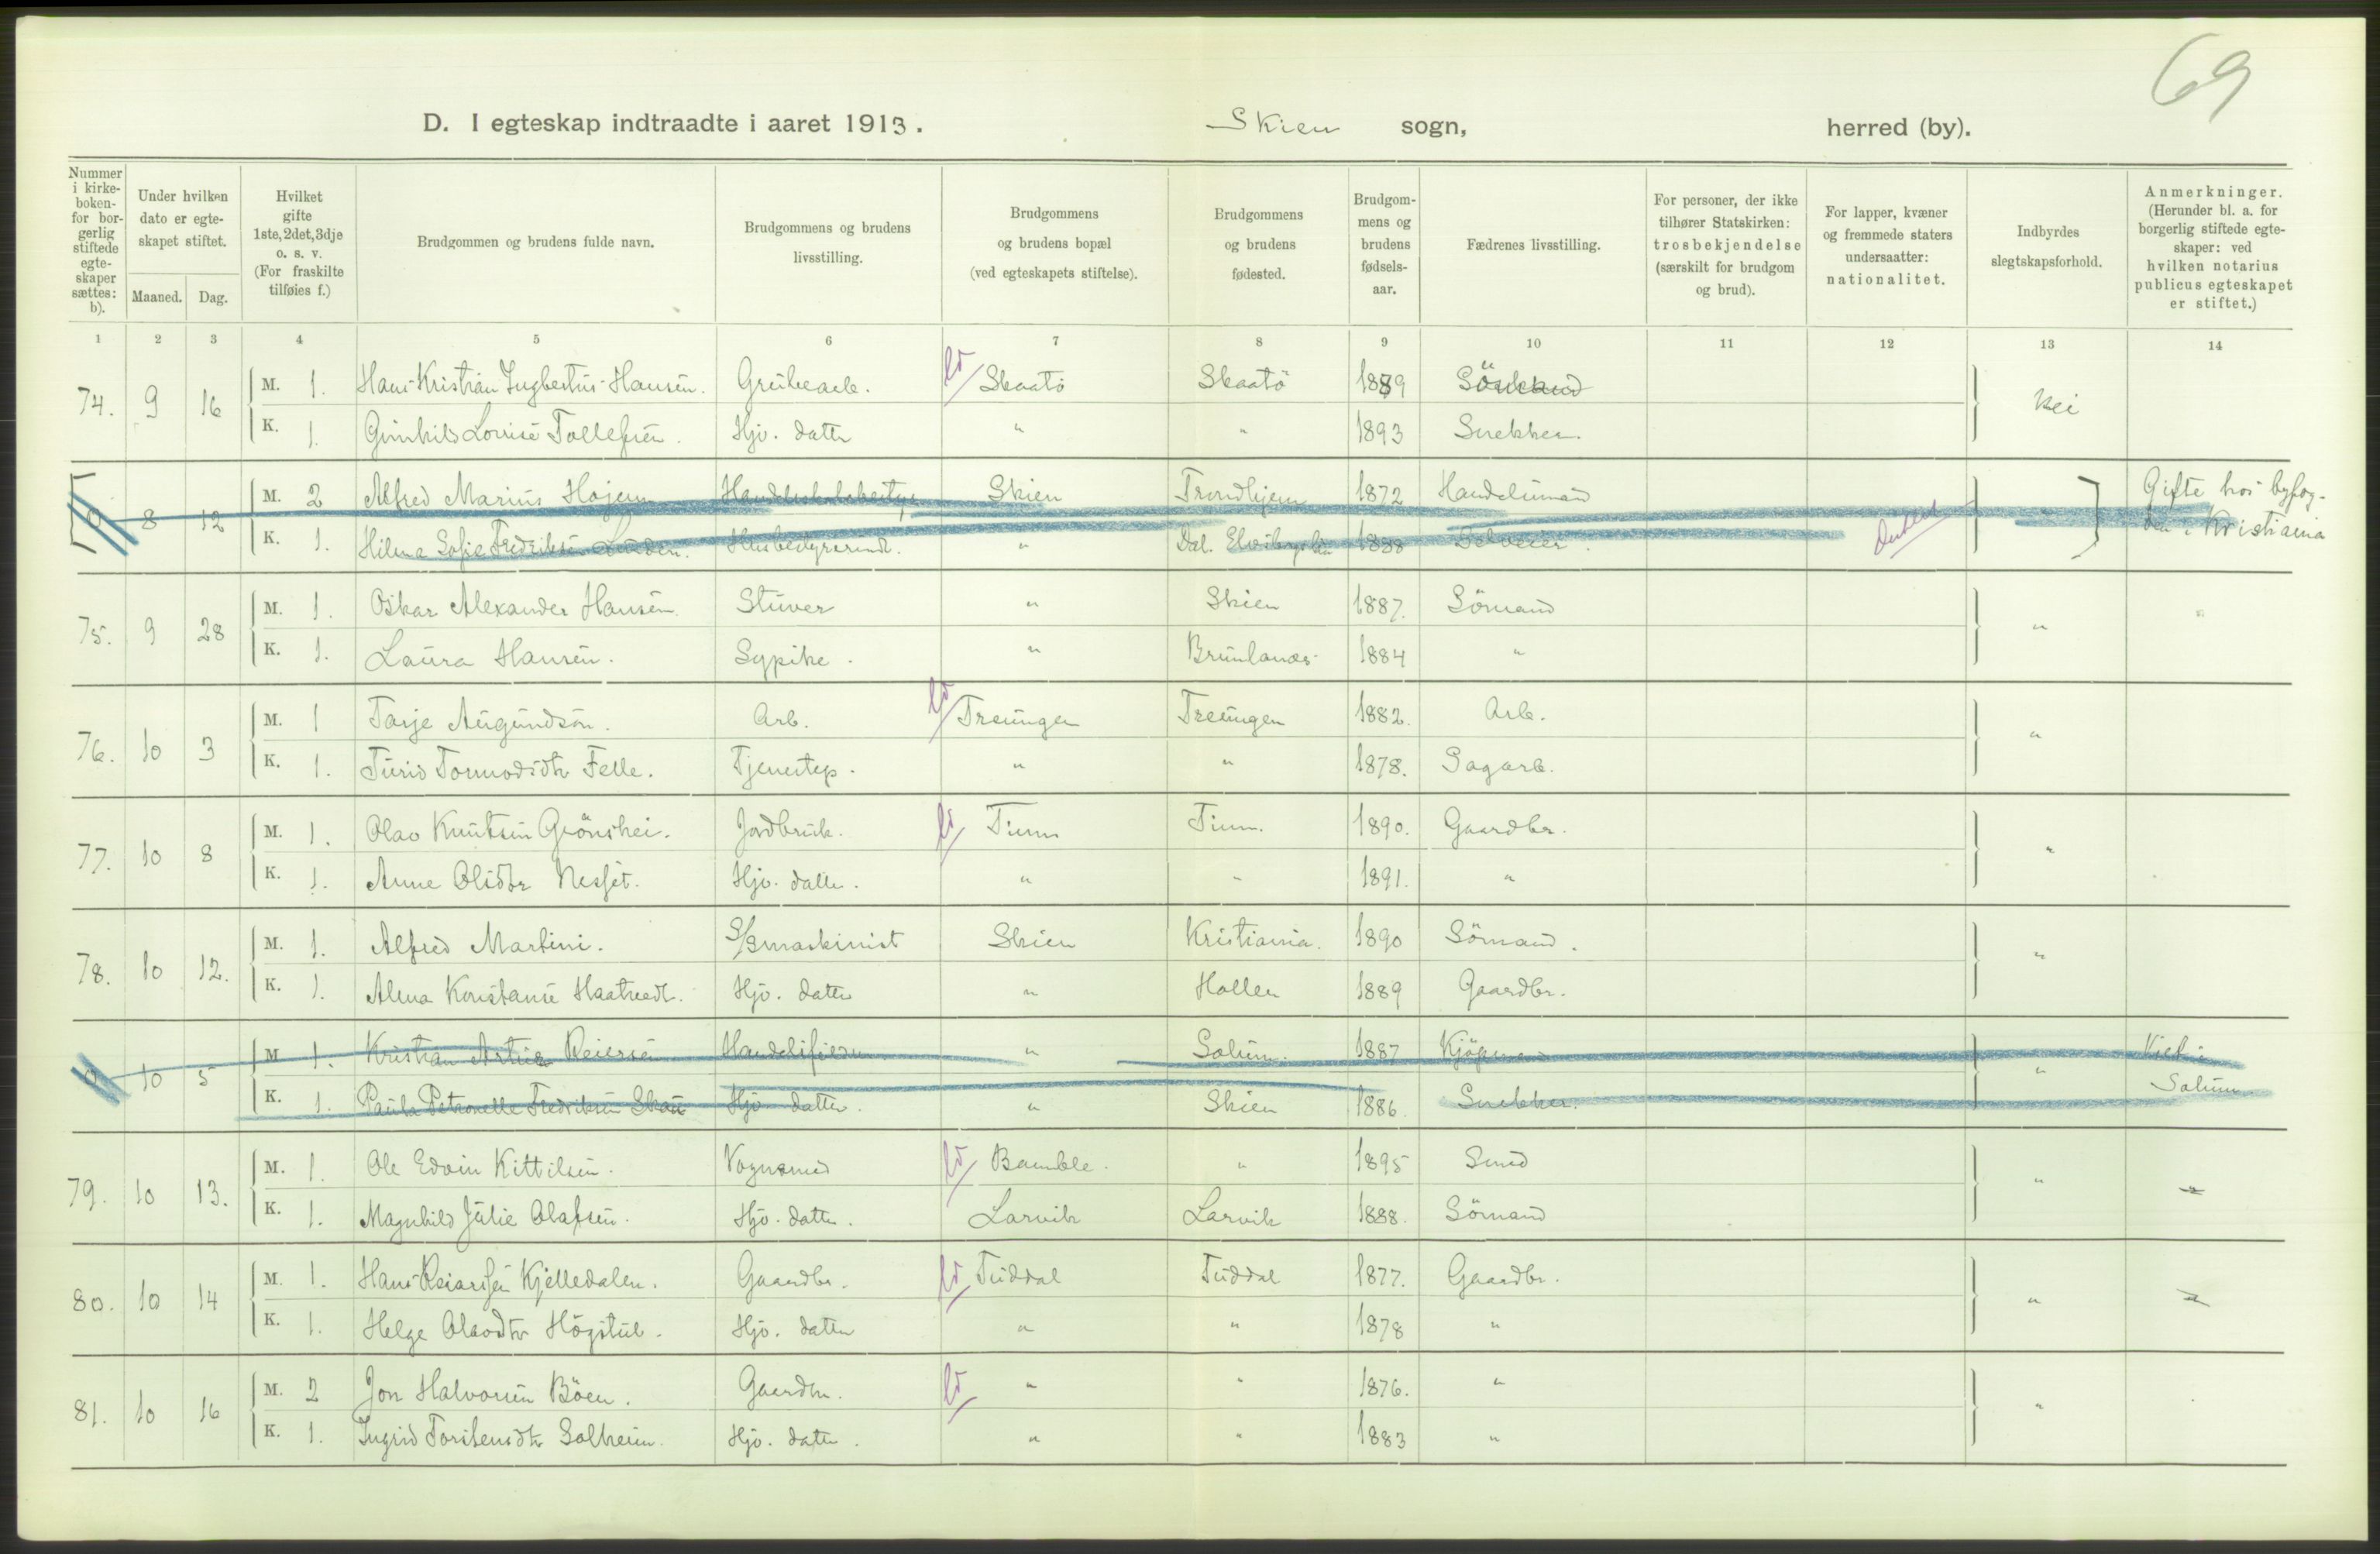 69
D. I egteskap indtraadte i aaret 1913. Skien sogn, herred (by).
Nummer i kirke-boken- for bor-gerlig stiftede egte-skaper sættes: b).
Under hvilken dato er egte-skapet stiftet.
Maaned. Dag.
Hvilket gifte 1ste, 2det, 3dje o. s. v. (For fraskilte tilføies f.)
Brudgommen og brudens fulde navn.
Brudgommens og brudens livsstilling.
Brudgommens og brudens bopæl (ved egteskapets stiftelse).
Brudgommens og brudens fødested.
Brudgom-mens og brudens fødsels-aar.
Fædrenes livsstilling.
For personer, der ikke tilhører Statskirken: trosbekjendelse (særskilt for brudgom og brud).
For lapper, kvæner og fremmede staters undersaatter: nationalitet.
Indbyrdes slegtskapsforhold.
Anmerkninger. (Herunder bl. a. for borgerlig stiftede egte-skaper: ved hvilken notarius publicus egteskapet er stiftet.)
1 2 3 4 5 6 7 8 9 10 11 12 13 14
74. 9 16 M. 1. Hans Kristian Ingbertus Hansen. Grubearb. Skaatö Skaatö 1889 Sömand Nei
K. 1. Gunhild Lovise Tollefsen. Hjv. datter " " 1893 Snekker.
0 8 12 M. 2 Alfred Marius Hojem Skien Trondhjem 1872 Handelsmand " Gifte hos byfog-
K. 1. Hilma Sofie Fredriksen Lunden. Husbestyrerinde. " Dal. 1888 Selveier. den i Kristiania
75. 9 28 M. 1. Oskar Alexander Hansen Stuver " Skien 1887. Sömand "
K. 1. Laura Hansen. Sypike. " Brunlanæs 1884 "
76. 10 3 M. 1 Tarje Augundsøn. Arb. Treungen Treungen 1882. Arb. "
K. 1. Turid Tormodsdtr Felle. Tjenestep. " " 1878. Sagarb.
77. 10 8 M. 1. Olav Knutsen Grönskei. Jordbruk. Tinn Tinn. 1890. Gaardbr. "
K. 1. Anne Olsdtr Nesset. Hjv. datter. " " 1891. "
78. 10 12. M. 1. Alfred Martini. S/Smaskinist Skien Kristiania. 1890 Sömand. "
K. 1. Alma Konstanse Haatvedt. Hjv. datter " Hollen 1889 Gaardbr.
0 10 5 M. 1. Kristian Artur Reiersen " Solum. 1887 Kjöpmand " Viet i
K. 1. Paula Petronelle Fredriksen Skau Hjv datter. " Skien 1886. Snekker. Solum
79. 10 13. M. 1. Ole Edvin Kittilsen. Vognsmed Bamble. " 1895 Smed "
K. 1. Magnhild Julie Olafsen. Hjv. datter. Larvik Larvik 1888. Sömand
80. 10 14 M. 1. Hans Reiarsen Kjelledalen. Gaardbr. Tuddal Tuddal 1877. Gaardbr. "
K. 1. Helge Olavdtr Högstul. Hjv. datter " " 1878 "
81. 10 16 M. 2 Jon Halvorsen Böen. Gaardbr. " " 1876. " "
K. 1. Ingrid Torstensdtr Solheim. Hjv. datter. " " 1883 "